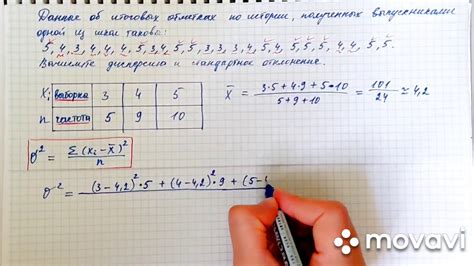 Данные об итоговых отметках по истории, полученных выпускниками
одной из школ таковы:
5, 4, 3, 4, 4, 4, 5, 3, 4, 5, 5, 3, 3, 3, 4, 5, 4, 5, 5, 5, 4, 4, 5, 5.
Вычислите дисперсию и стандартное отклонение.
Xi выборка 3 4 5
n частота 5 9 10
x̄ = (3·5 + 4·9 + 5·10) / (5 + 9 + 10) = 101 / 24 ≃ 4,2
σ² = Σ (xi − x̄)² / n
σ² = (3−4,2)²·5 + (4−4,2)²·9 + (5−
movavi